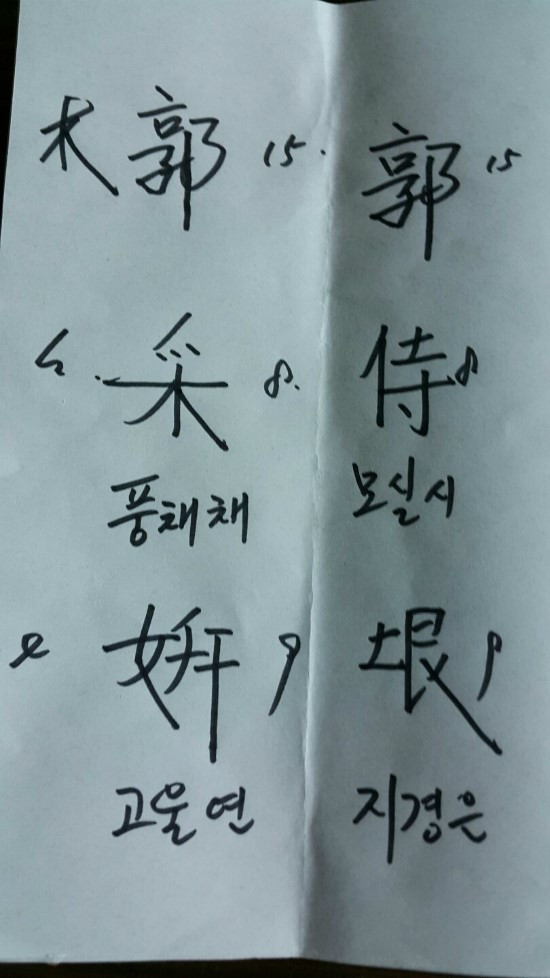 木 郭 15. 郭 15
采 8. 侍 8
풍채채 모실시
姸 9 垠 9
고울연 지경은